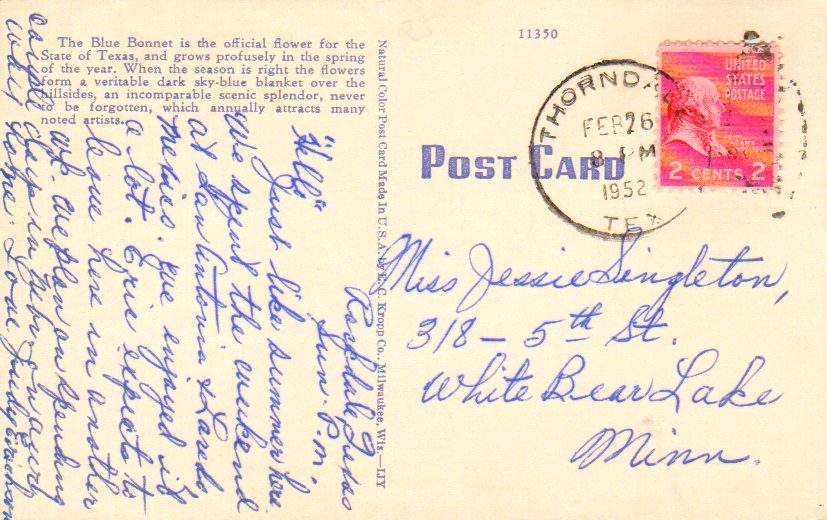 The Blue Bonnet is the official flower for the
State of Texas, and grows profusely in the spring
of the year. When the season is right the flowers
form a veritable dark sky-blue blanket over the
hillsides, an incomparable scenic splendor, never
to be forgotten, which annually attracts many
noted artists.
Natural Color Post Card Made in U.S.A. by E. C. Kropp Co., Milwaukee, Wis.—IJY
11350
POST CARD
THORNDALE
FEB 26
8 PM
1952
TEX
UNITED
STATES
POSTAGE
JOHN
ADAMS
2 CENTS 2
Miss Jessie Singleton,
318 – 5th St.
White Bear Lake
Minn.
Rockdale Texas
Sun. P.M.
"Hello"
Just like summer here
We spent the weekend
at San Antonio & Laredo
Mexico. Eve enjoyed it
a lot. Eric expects to
leave here in another
wk. We plan on spending
couple days in on
way home. Love Judy